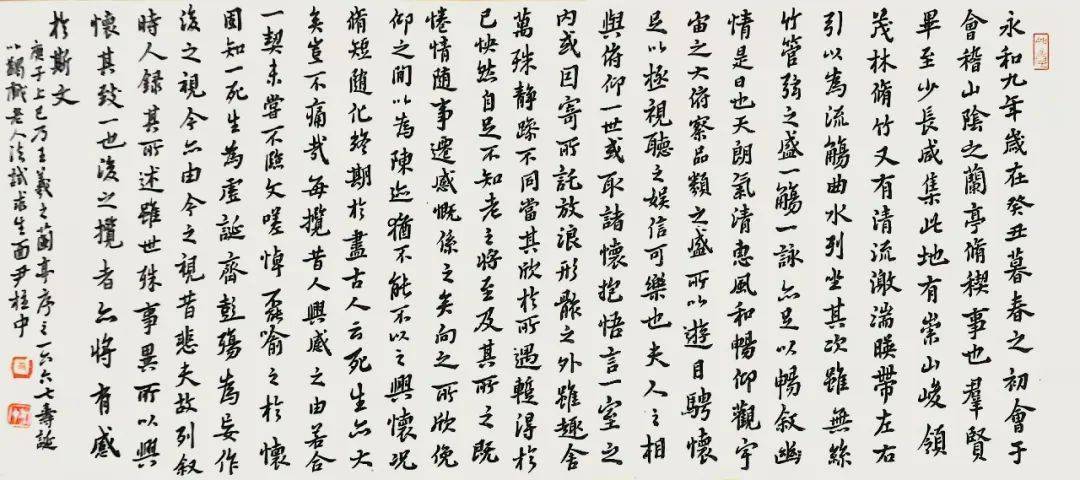 永和九年歲在癸丑暮春之初會于
會稽山陰之蘭亭脩稧事也羣賢
畢至少長咸集此地有崇山峻領
茂林脩竹又有清流激湍暎帶左右
引以為流觴曲水列坐其次雖無絲
竹管弦之盛一觴一詠亦足以暢敘幽
情是日也天朗氣清惠風和暢仰觀宇
宙之大俯察品類之盛所以遊目騁懷
足以極視聽之娛信可樂也夫人之相
與俯仰一世或取諸懷抱悟言一室之
內或因寄所託放浪形骸之外雖趣舍
萬殊靜躁不同當其欣於所遇蹔得於
己怏然自足不知老之將至及其所之既
惓情隨事遷感慨係之矣向之所欣俛
仰之間以為陳迹猶不能不以之興懷況
脩短隨化終期於盡古人云死生亦大
矣豈不痛哉每攬昔人興感之由若合
一契未嘗不臨文嗟悼不能喻之於懷
固知一死生為虛誕齊彭殤為妄作
後之視今亦由今之視昔悲夫故列敘
時人錄其所述雖世殊事異所以興
懷其致一也後之攬者亦將有感
於斯文
庚子上巳乃王羲之蘭亭序之一六六七壽誕
以老人法試求生面尹柱中